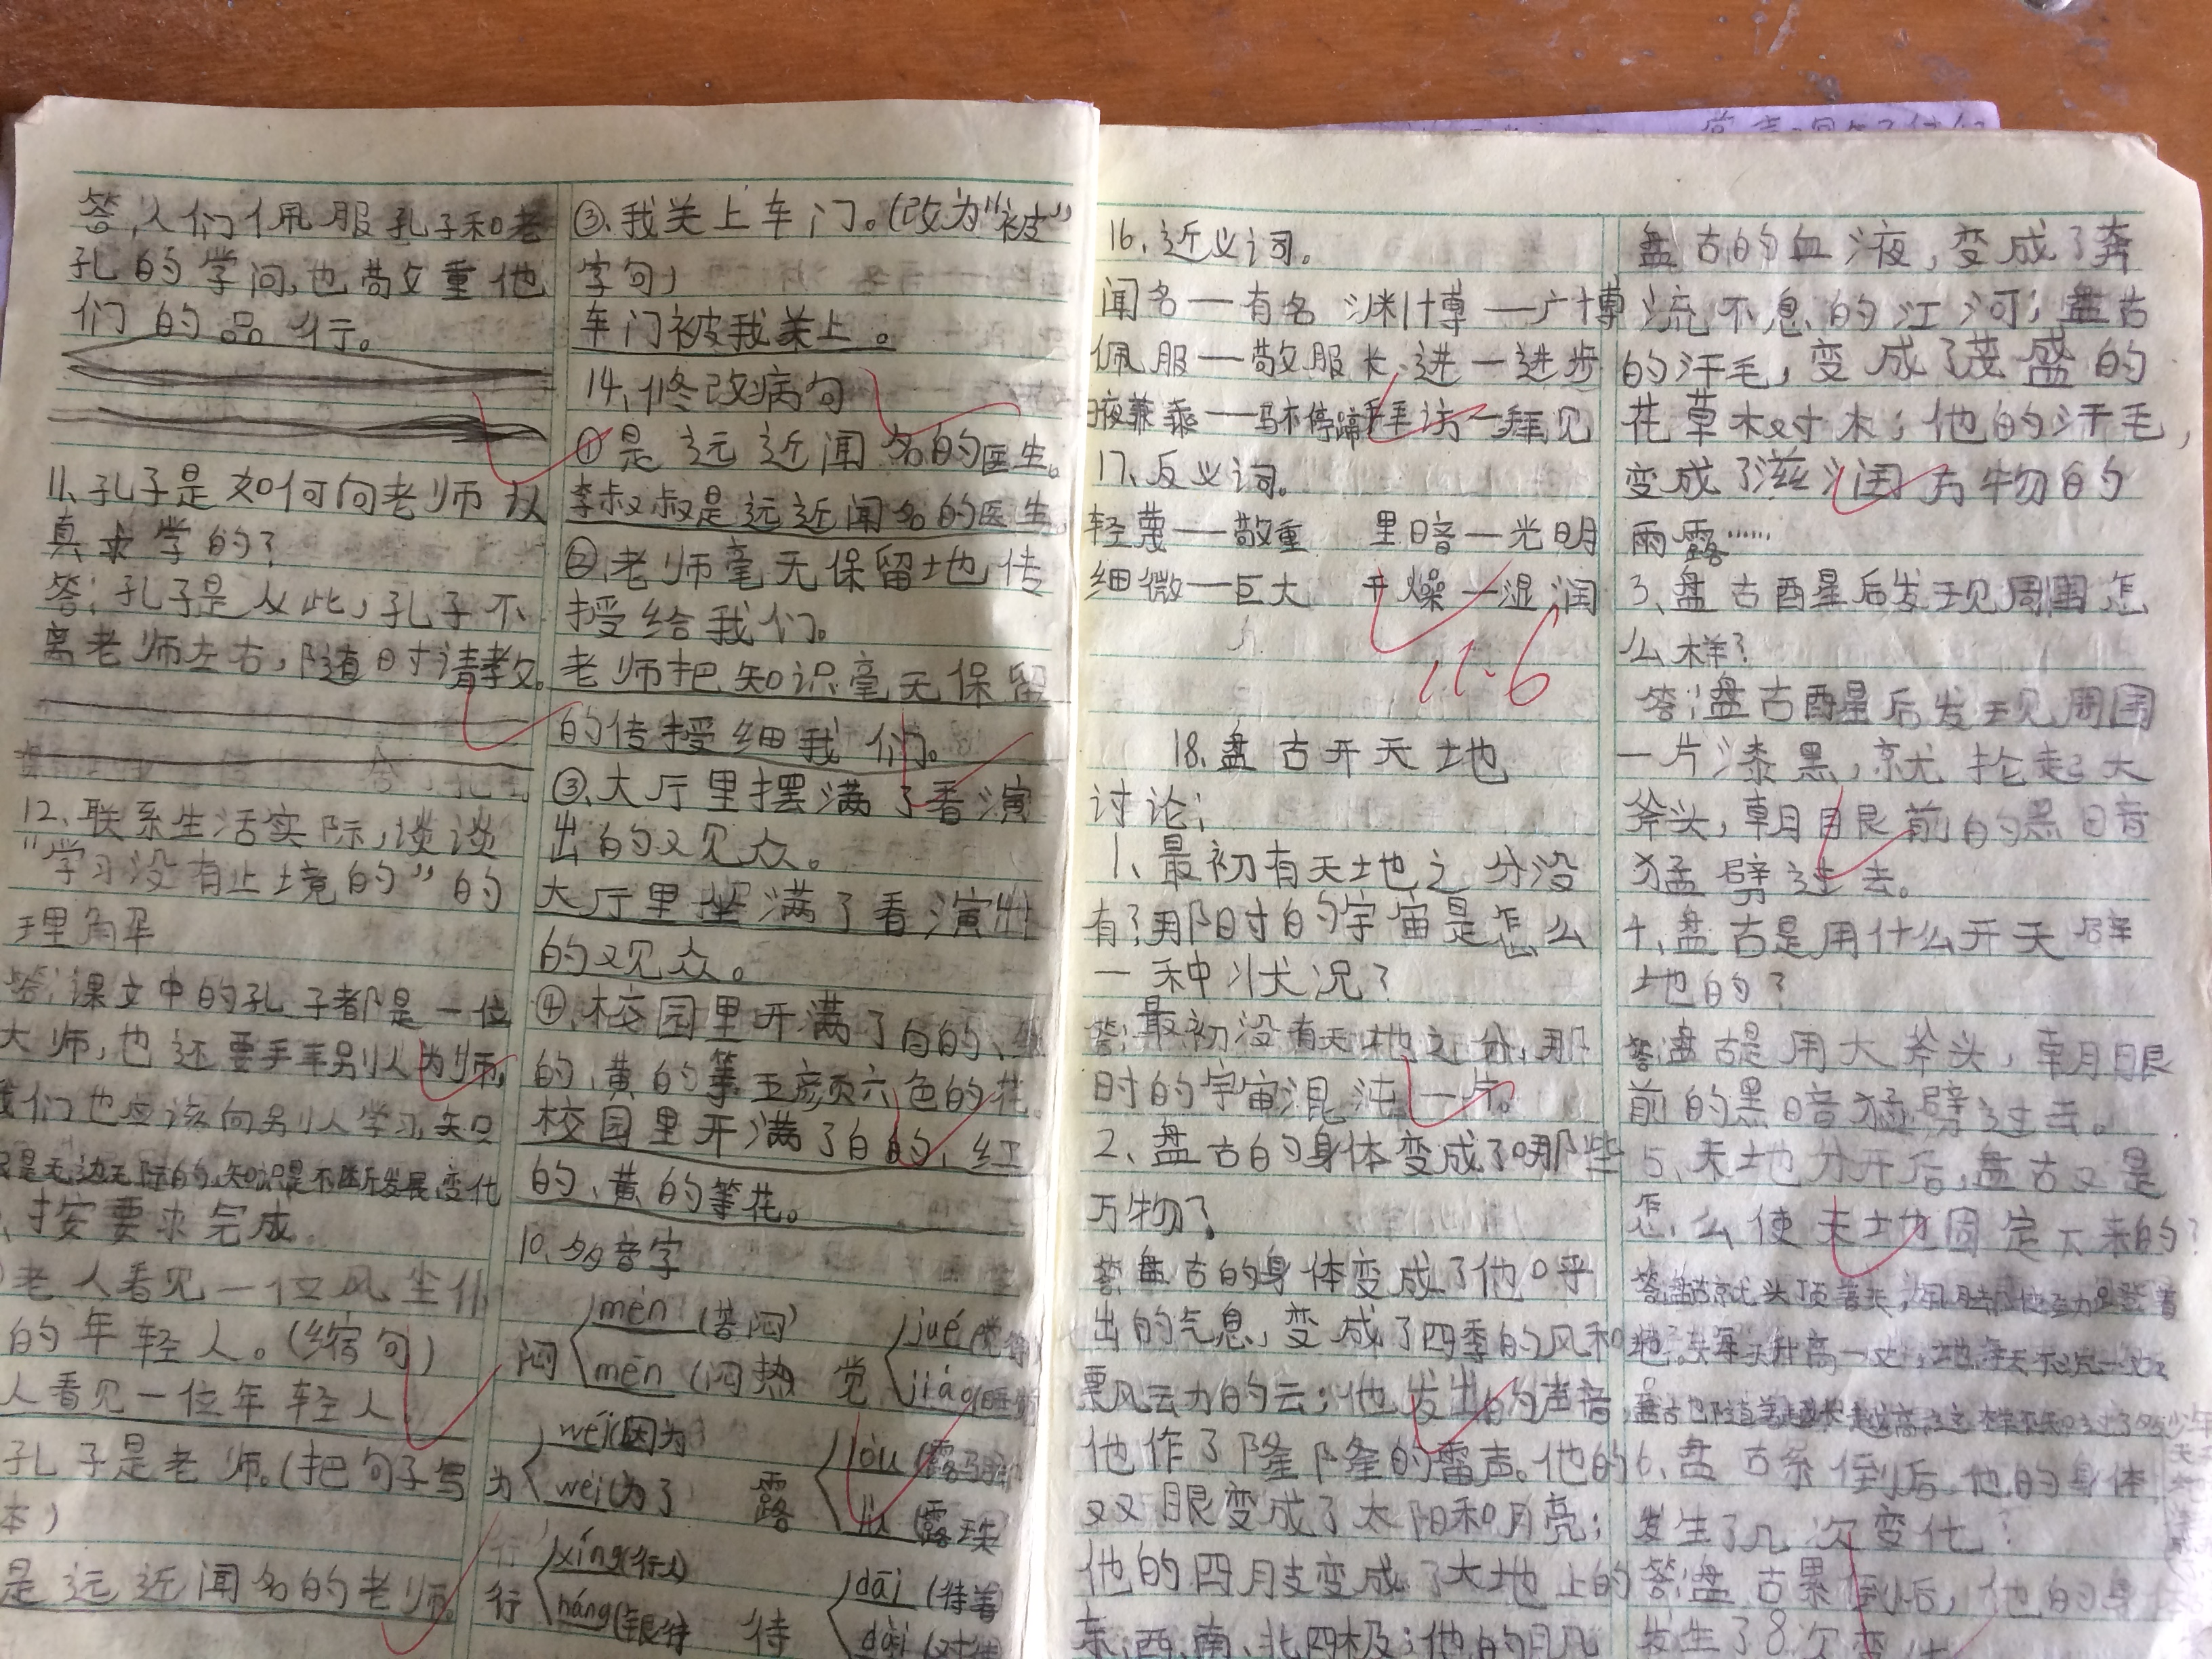 答,人们佩服孔子和老
孔的学问,也敬重他
们的品行。
11、孔子是如何向老师认
真求学的?
答:孔子是从此,孔子不
离老师左右,随时请教。
12、联系生活实际,谈谈
“学习没有止境的”的
理解
答:课文中的孔子都是一位
大师,也还要拜别人为师,
我们也应该向别人学习,知
识是无边无际的,知识是不断发展、变化
、按要求完成。
老人看见一位风尘仆
的年轻人。(缩句)
人看见一位年轻人。
孔子是老师。(把句子写
是远近闻名的老师。
③、我关上车门。(改为“被”
字句)
车门被我关上。
14、修改病句
①是远近闻名的医生。
李叔叔是远近闻名的医生
②、老师毫无保留地传
授给我们。
老师把知识毫无保留
的传授细我们。
③、大厅里摆满了看演
出的观众。
大厅里坐满了看演出
的观众。
④、校园里开满了白的、红
的、黄的等五颜六色的花。
校园里开满了白的、红
的、黄的等花。
10、多音字
闷 mèn (苦闷) mēn (闷热 觉 jué (觉得) jiào (睡觉
为 wéi (因为 wèi (为了 露 lòu (露马脚 lù (露珠
行 xíng (行人) háng (银行 待 dāi (待着 dài (对待
16、近义词。
闻名—有名 渊博—广博
佩服—敬服 长进—进步
日夜兼乘—马不停蹄 拜访—拜见
17、反义词。
轻蔑—敬重 黑暗—光明
细微—巨大 干燥—湿润
11.6
18、盘古开天地
讨论:
1、最初有天地之分没
有?那时的宇宙是怎么
一种状况?
答:最初没有天地之分,那
时的宇宙混沌一片。
2、盘古的身体变成了哪些
万物?
答:盘古的身体变成了他呼
出的气息,变成了四季的风和
飘动的云;他发出的声音,
他作了隆隆的雷声。他的
双眼变成了太阳和月亮;
他的四肢变成了大地上的
东、西、南、北四极;他的肌
盘古的血液,变成了奔
流不息的江河;盘古
的汗毛,变成了茂盛的
花草树木;他的汗毛,
变成了滋润万物的
雨露……
3、盘古醒后发现周围怎
么样?
答:盘古醒后发现周围
一片漆黑,就抡起大
斧头,朝眼前的黑暗
猛劈过去。
4、盘古是用什么开天辟
地的?
答:盘古是用大斧头,朝眼
前的黑暗猛劈过去。
5、天地分开后,盘古又是
怎么使天地固定下来的?
答:盘古就头顶着天,用脚使劲蹬着
地。天每天升高一丈,地每天下沉一丈,
盘古也随着越长越高。
6、盘古累倒后他的身体
发生了几次变化?
答:盘古累倒后,他的身
发生了8次变化